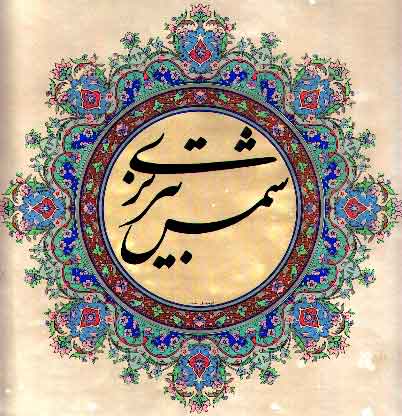 شمس تبریزی